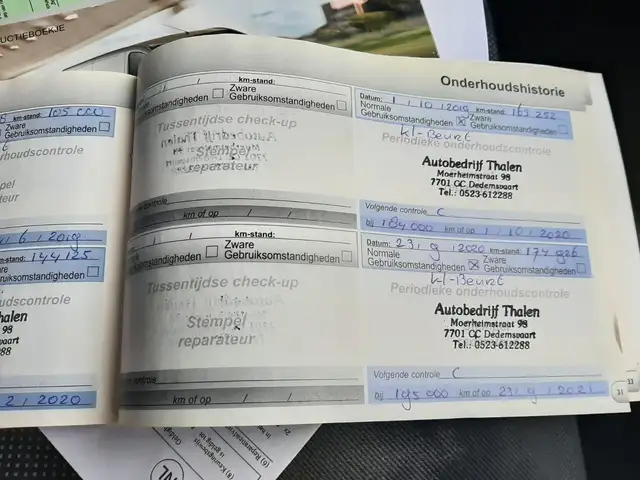 UCTIEBOEKJE
Onderhoudshistorie
km-stand: 105 000
Zware
Gebruiksomstandigheden
dscontrole
6 / 2019
km-stand: 144 125
Zware
Gebruiksomstandigheden
oudscontrole
halen
at 98
288
2 / 2020
/ / km-stand:
Normale Zware
Gebruiksomstandigheden
Tussentijdse check-up
Stempel
reparateur
controle
km of op / /
/ / km-stand:
Zware
Gebruiksomstandigheden
Tussentijdse check-up
Stempel
reparateur
controle
km of op / /
Datum: 1 / 10 / 2019 km-stand: 163 252
Normale Zware
Gebruiksomstandigheden Gebruiksomstandigheden
kl-Beurt
Periodieke onderhoudscontrole
Autobedrijf Thalen
Moerheimstraat 98
7701 CC Dedemsvaart
Tel.: 0523-612288
Volgende controle C
bij 184 000 km of op 1 / 10 / 2020
Datum: 23 / 9 / 2020 km-stand: 174 926
Normale Zware
Gebruiksomstandigheden Gebruiksomstandigheden
kl-Beurt
Periodieke onderhoudscontrole
Autobedrijf Thalen
Moerheimstraat 98
7701 CC Dedemsvaart
Tel.: 0523-612288
Volgende controle C
bij 195 000 km of op 23 / 9 / 2021
31
33
NL